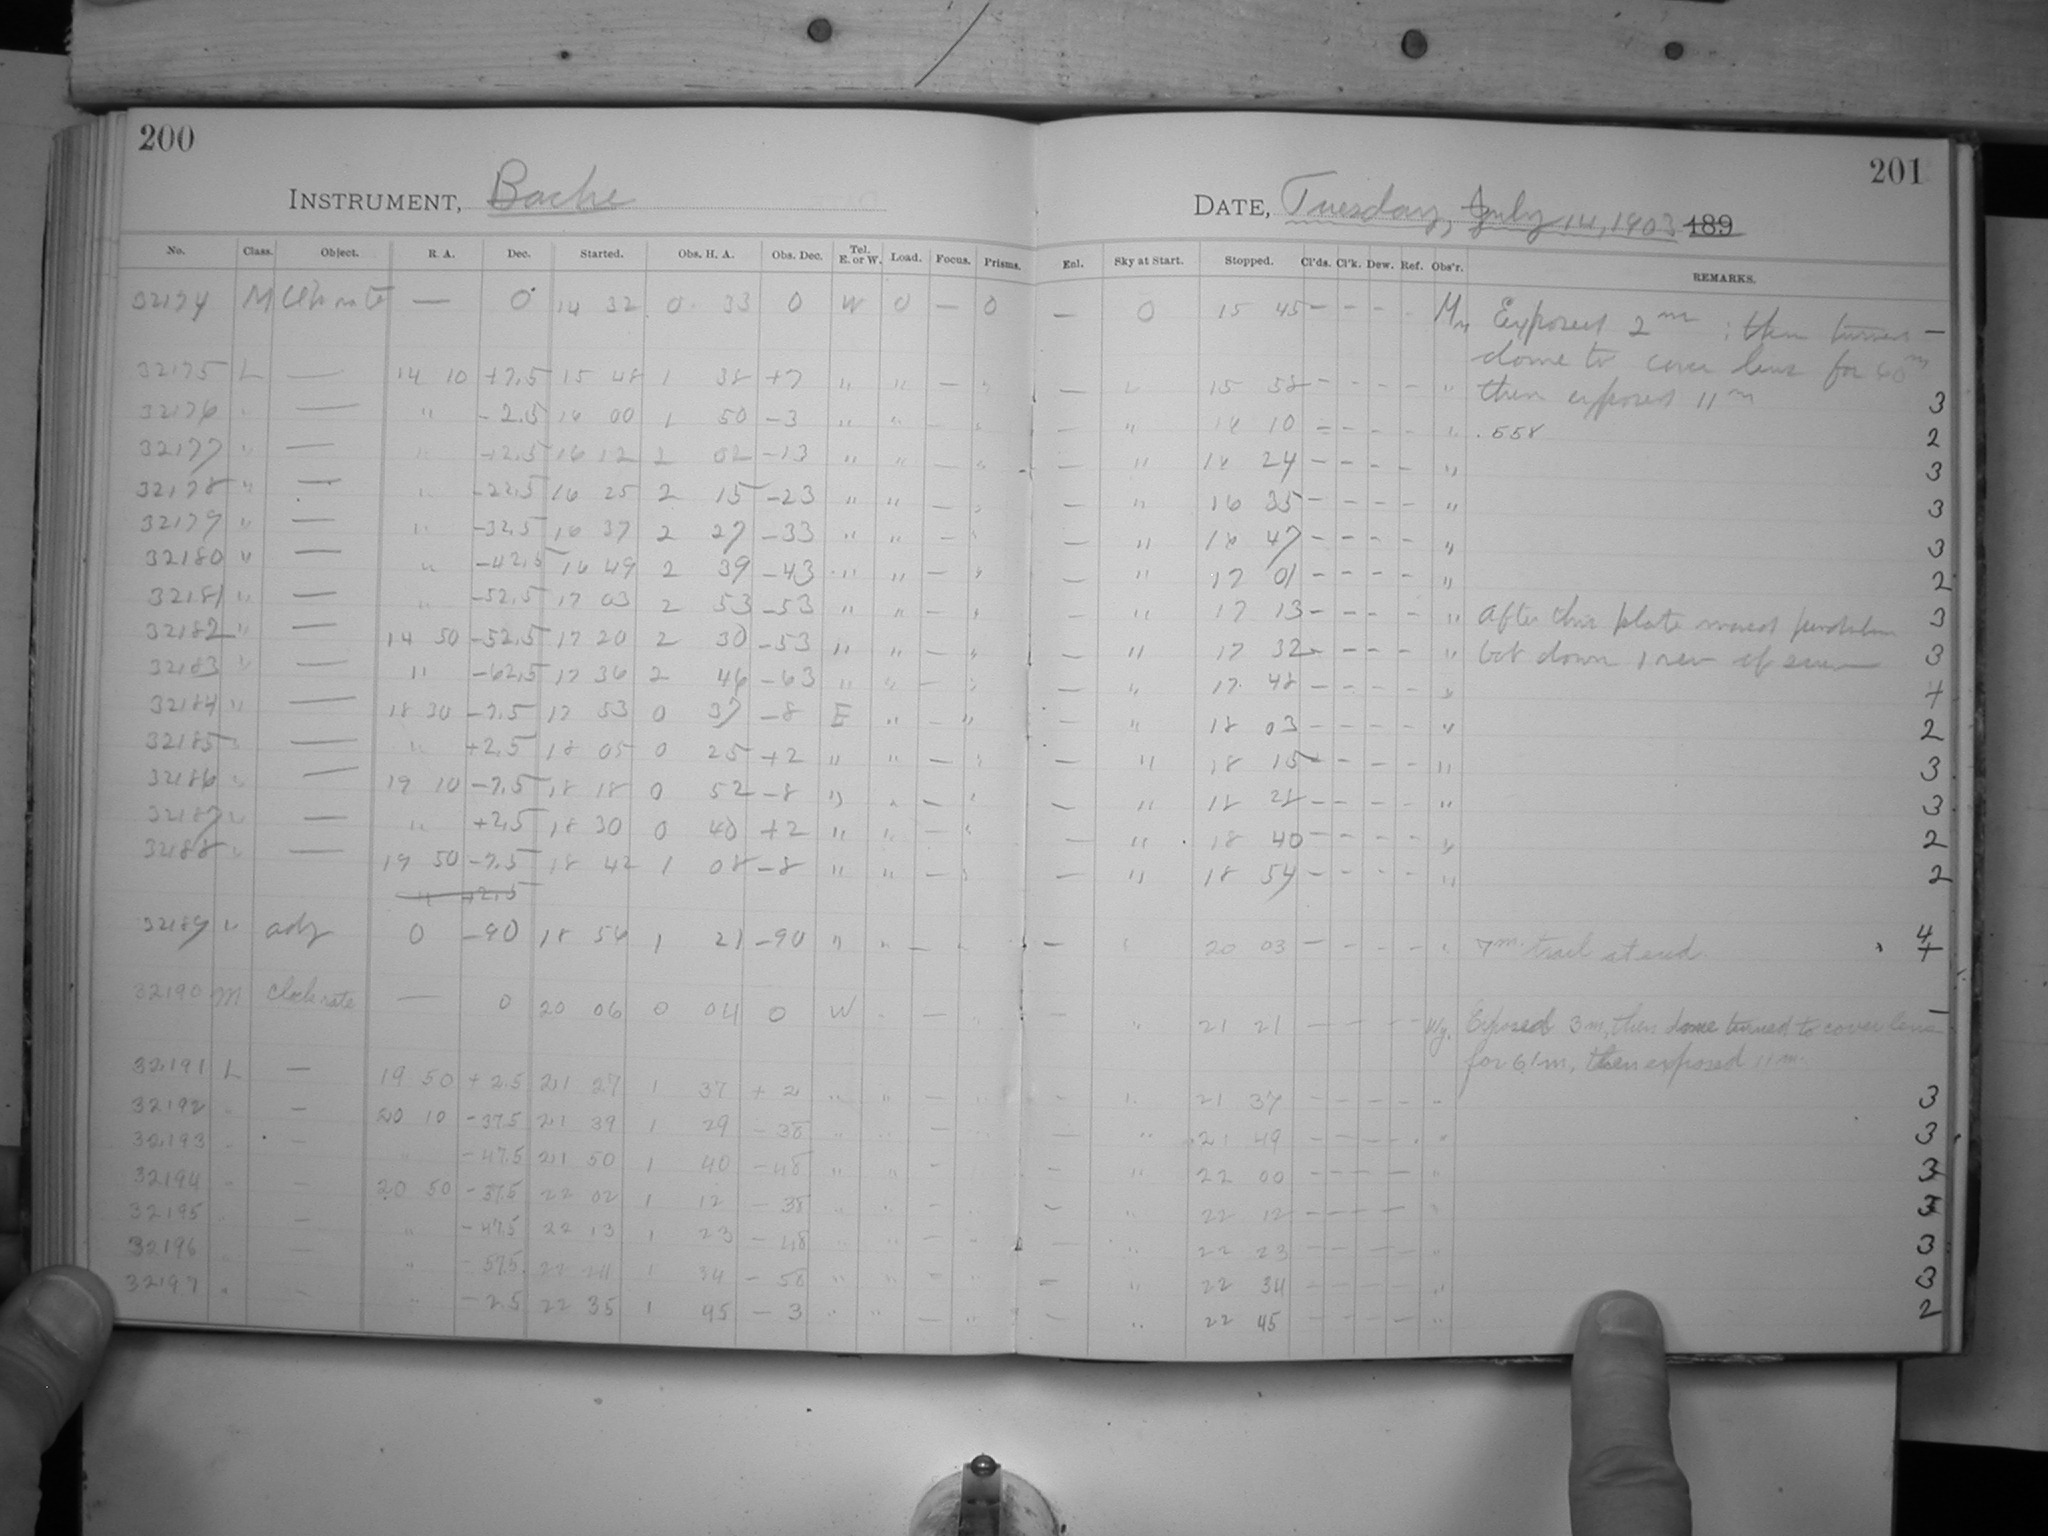 200
201
INSTRUMENT, Bache
DATE, Tuesday, July 14, 1903 189
No. Class. Object. R. A. Dec. Started. Obs. H. A. Obs. Dec. Tel. E. or W. Load. Focus. Prisms. Enl. Sky at Start. Stopped. Cl'ds. Cl'k. Dew. Ref. Obs'r. REMARKS.
32174 M Cl'k rate — 0 14 32 0 33 0 W 0 — 0 — 0 15 45 — — — Exposed 2m; then turned —
dome to cover lens for 60m
32175 L — 14 10 +7.5 15 48 1 38 +7 " " — " — " 15 58 — — — — " then exposed 11m 3
32176 " — " -2.5 16 00 1 50 -3 " " — " — " 16 10 — — — — " .558 2
32177 " — " -12.5 16 12 2 02 -13 " " — " — " 16 24 — — — — " 3
32178 " — " -22.5 16 25 2 15 -23 " " — " — " 16 35 — — — — " 3
32179 " — " -32.5 16 37 2 27 -33 " " — " — " 16 47 — — — — " 3
32180 " — " -42.5 16 49 2 39 -43 " " — " — " 17 01 — — — — " 2
32181 " — " -52.5 17 03 2 53 -53 " " — " — " 17 13 — — — — " After this plate moved pendulum 3
32182 " — 14 50 -52.5 17 20 2 30 -53 " " — " — " 17 32 — — — — " bob down 1 rev of screw 3
32183 " — " -62.5 17 36 2 46 -63 " " — " — " 17 48 — — — — "
32184 " — 18 30 -7.5 17 53 0 37 -8 E " — " — " 18 03 — — — — " 2
32185 " — " +2.5 18 05 0 25 +2 " " — " — " 18 15 — — — — " 3
32186 " — 19 10 -7.5 18 18 0 52 -8 " " — " — " 18 28 — — — — " 3
32187 " — " +2.5 18 30 0 40 +2 " " — " — " 18 40 — — — — " 2
32188 " — 19 50 -7.5 18 42 1 08 -8 " " — " — " 18 54 — — — — " 2
" +2.5
32189 " adj 0 -90 18 56 1 21 -90 " " — " — " 20 03 — — — — " 7m trail at end. 4
32190 M Clock rate — 0 20 06 0 04 0 W " — " — " 21 21 — — — — Wy. Exposed 3m, then dome turned to cover lens —
for 61m, then exposed 11m.
32191 L — 19 50 +2.5 21 27 1 37 +2 " " — " — " 21 37 — — — — " 3
32192 " — 20 10 -37.5 21 39 1 29 -38 " " — " — " 21 49 — — — — " 3
32193 " — " -47.5 21 50 1 40 -48 " " — " — " 22 00 — — — — " 3
32194 " — 20 50 -37.5 22 02 1 12 -38 " " — " — " 22 12 — — — — " 3
32195 " — " -47.5 22 13 1 23 -48 " " — " — " 22 23 — — — — " 3
32196 " — " -57.5 22 24 1 34 -58 " " — " — " 22 34 — — — — " 3
32197 " — " -2.5 22 35 1 45 -3 " " — " — " 22 45 — — — — " 2